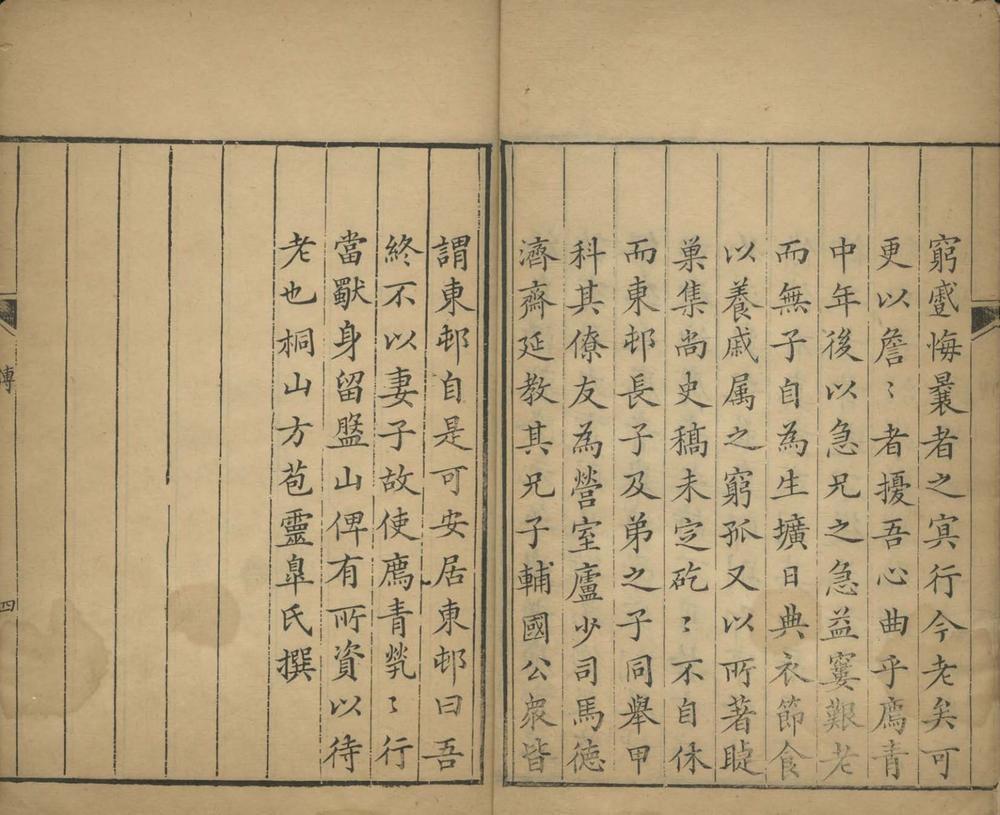 窮蹙悔曩者之冥行今老矣可
更以詹〻者擾吾心曲乎廌青
中年後以急兄之急益窶艱老
而無子自為生壙日典衣節食
以養戚属之窮孤又以所著睫
巢集尚史稿未㝎矻〻不自休
而東邨長子及弟之子同舉甲
科其僚友為營室廬少司馬德
濟齋延教其兄子輔國公衆皆
謂東邨自是可安居東邨曰吾
終不以妻子故使廌青煢〻行
當獻身留盤山俾有所資以待
老也桐山方苞靈臯氏撰
傳
四